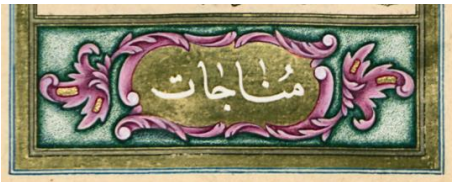 مُنَاجَات